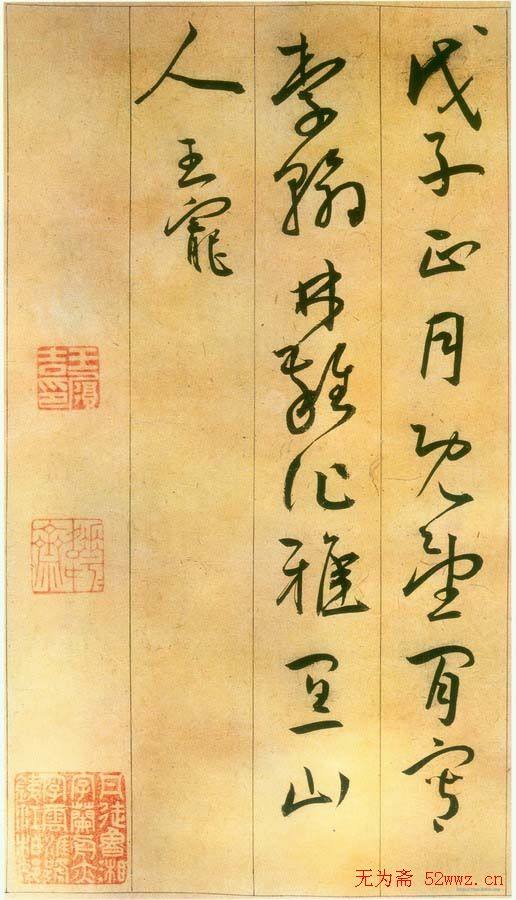 戊子正月既望閒寫
李翰林雜作雅宜山
人王寵
王履吉印
无为斋 52wwz.cn